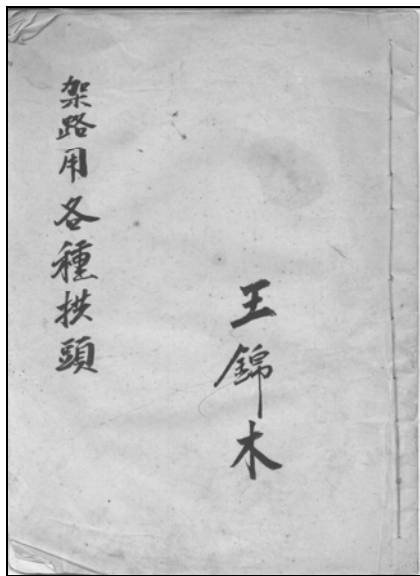 王錦木
架路用各種拱頭